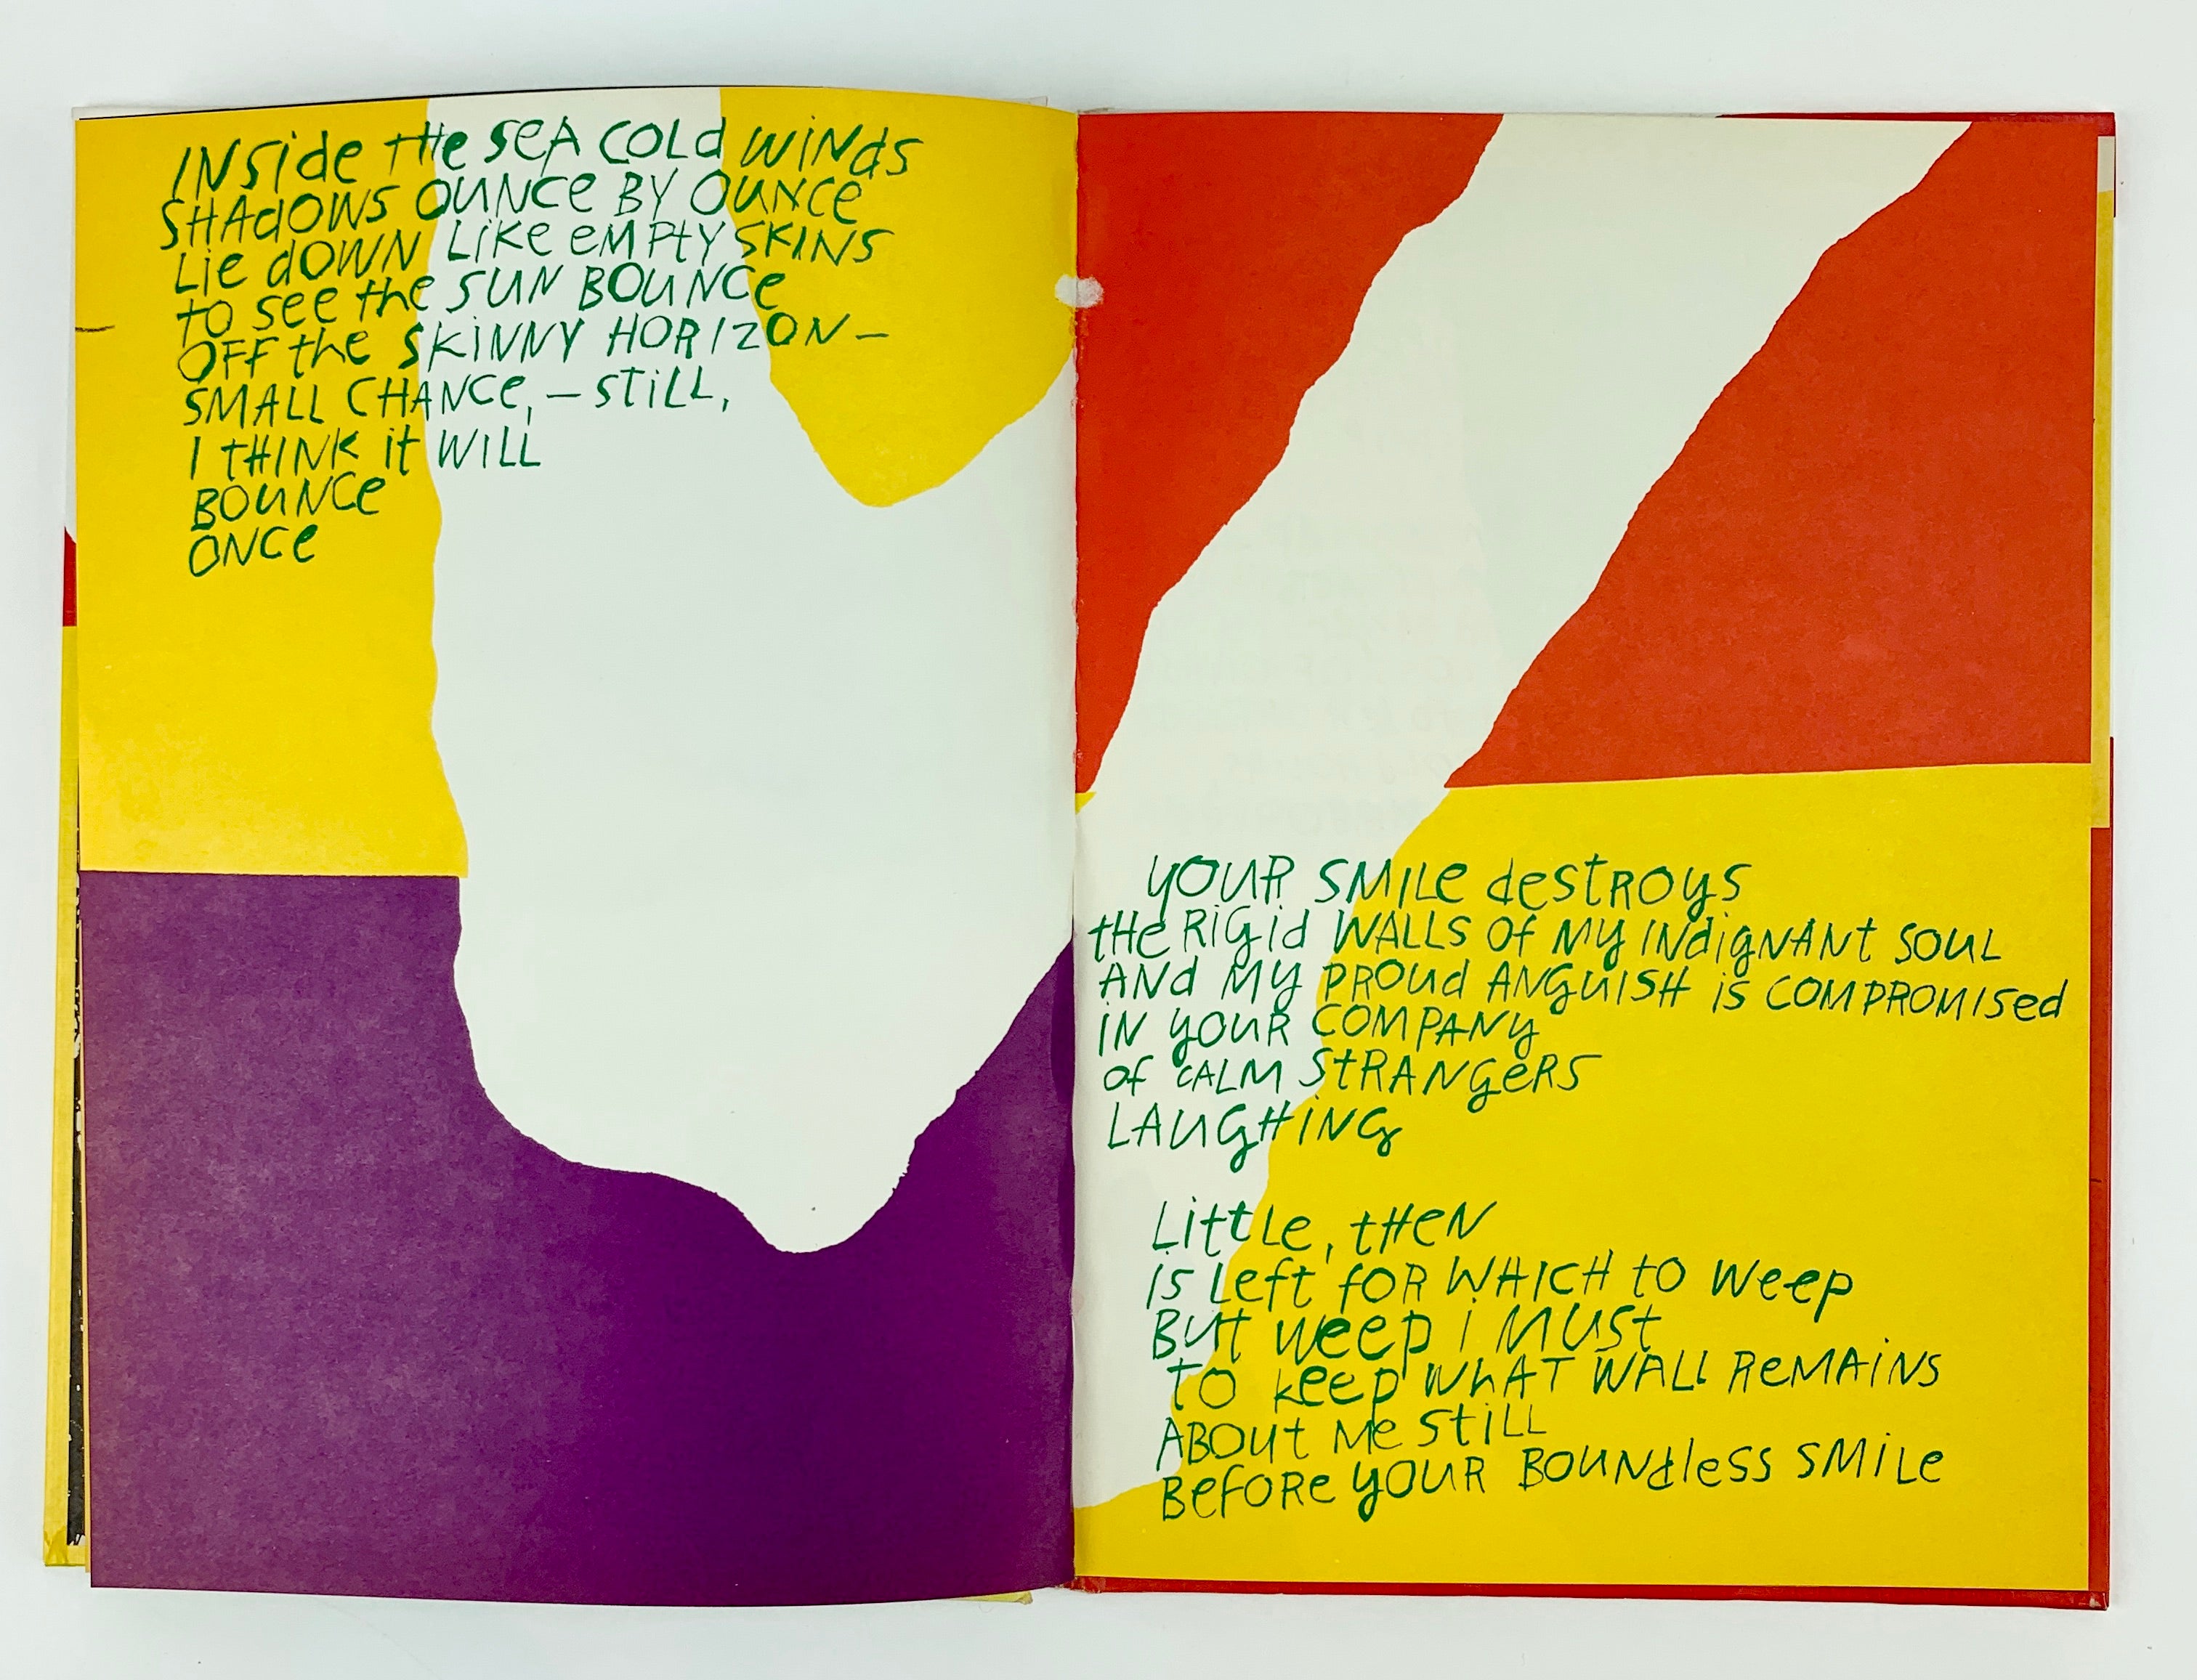 INSide tHe SeA COLd WiNds
SHAdOWS OUNCe BY OUNCe
Lie dOWN LiKe eMPtY SKINS
tO see the SUN BOUNCe
OFF the SKiNNY HORIZON –
SMALL CHANCe, – StiLL,
I tHINK it WILL
BOUNCe
ONCe
yOUR SMILe destROys
tHe RiGid WALLS Of My INdigNANt SOUL
ANd My PROUd ANGUISH is COMPROMISed
IN yOUR COMPANy
Of CALM StRANgeRS
LAUGHiNg
LittLe, tHeN
iS Left fOR WHICH tO Weep
BUt weep i MUSt
TO keep WhAT WALL ReMAiNS
ABOUt Me StiLL
BefORe yOUR BOUNdless SMiLe